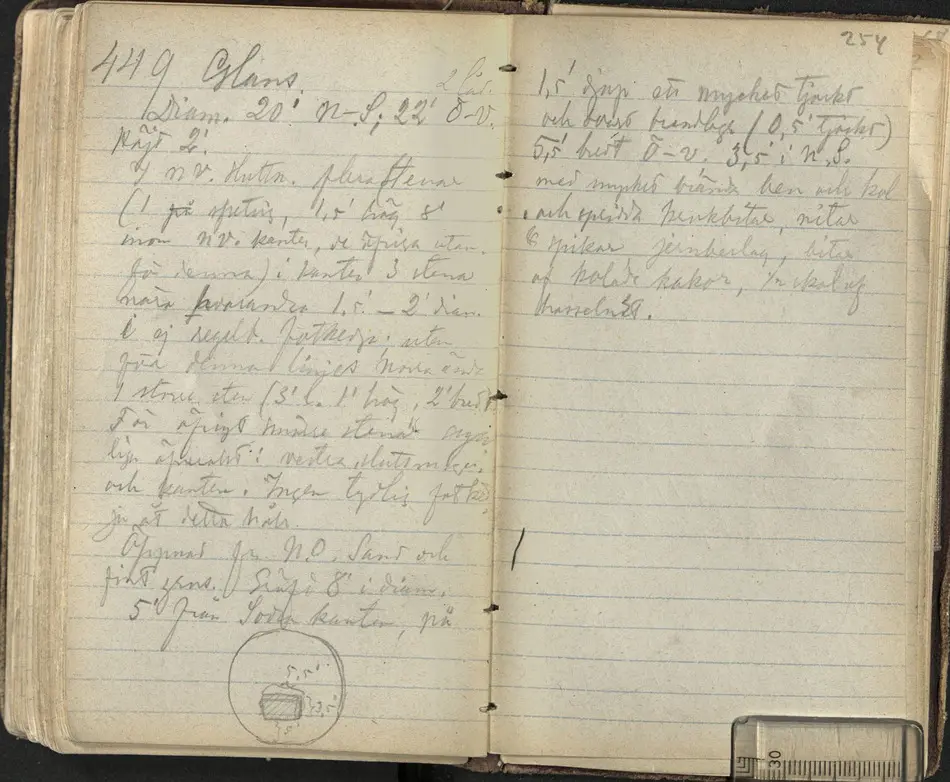 449 Glans.
2 låd.
Diam. 20' n-S; 22' Ö-V.
Höjd 2'.
I NV. sluttn. flera stenar
(1 på spetsig, 1,5' hög 8'
inom NV. kanten, de öfriga utan-
för denna) i kanten 3 stena
nära hvarandra 1,5' - 2' diam.
i ej regelb. fotkedja. utan
för denna linjes norra ände
1 större sten (3' l. 1' hög, 2' bred
För öfrigt mindre stenar
och kanten. Ingen tydlig fotked
ja åt detta håll.
Öppnad fr. N.O. Sand och
fint grus. Gräfd 8' i diam.
5' från Södra kanten, på
5,5'
3,5'
254
1,5' djup ett mycket tjockt
och brandlager (0,5' tjockt)
5,5' bredt Ö-V. 3,5' i N.S.
med mycket brända ben och kol
och spridda krukbitar, nitar
6 spikar jernbeslag, bitar
af kolade kakor, 1/2 skal af
hasselnöt.
30